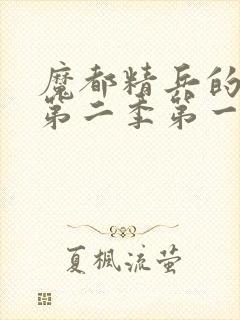 魔都精兵的
第二季第一
夏枫流萤